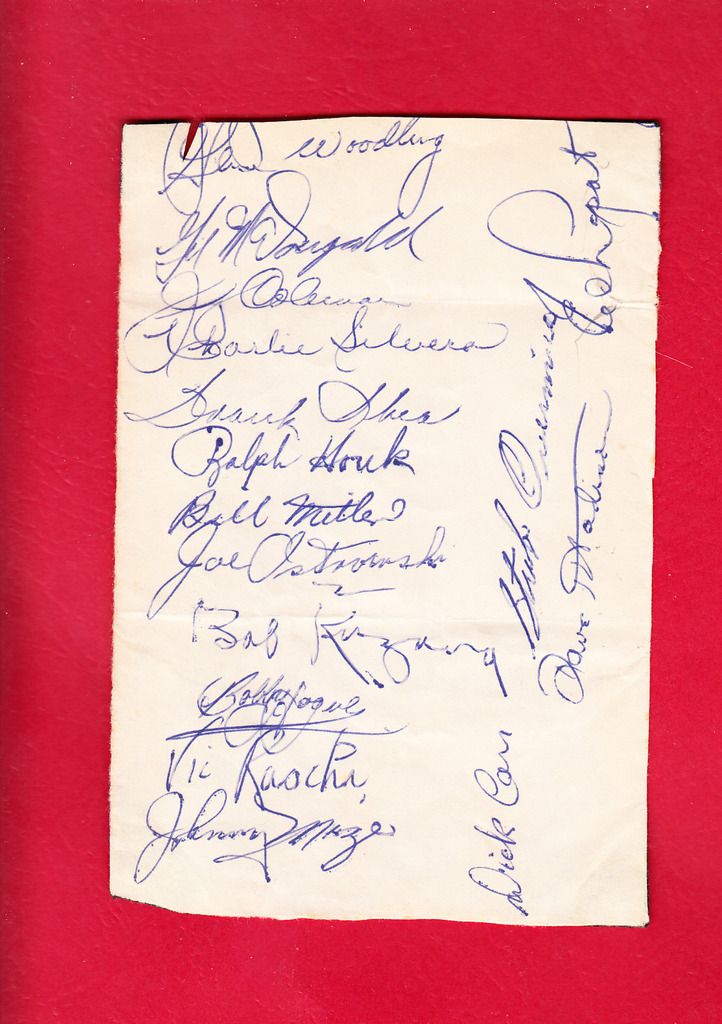 Gene Woodling
Gil McDougald
J Coleman
Charlie Silvera
Frank Shea
Ralph Houk
Bill Miller
Joe Ostrowski
Bob Kuzava
Bobby Hogue
Vic Raschi
Johnny Mize
Ed Lopat
Stubby Overmire
Dave Madison
Dick Carr